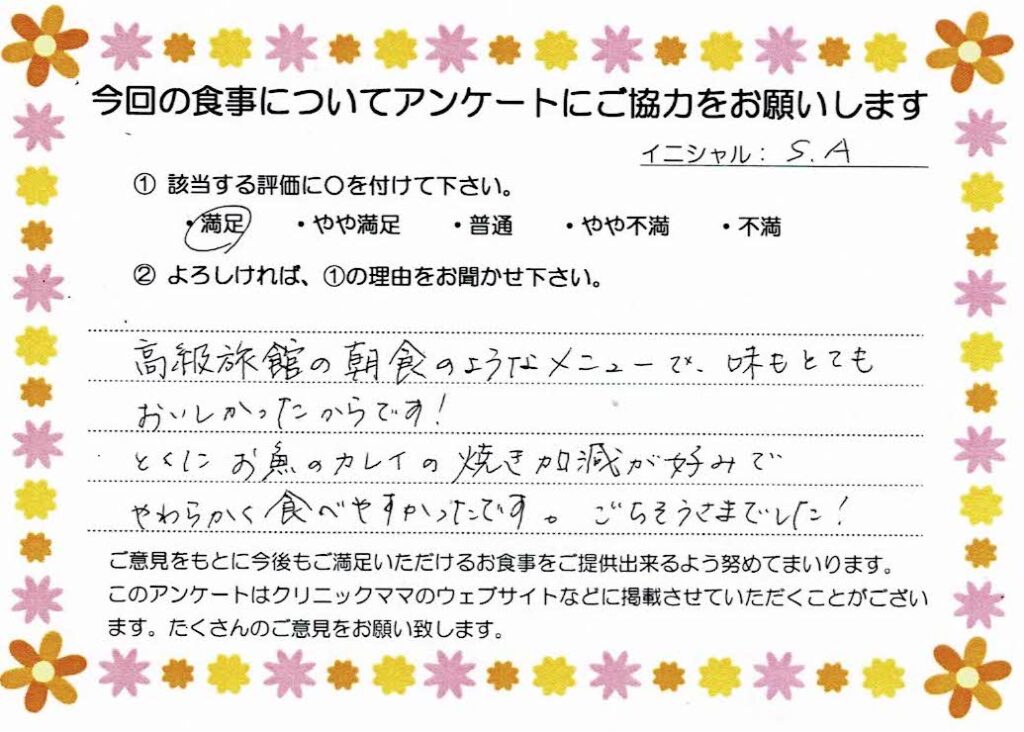 今回の食事についてアンケートにご協力をお願いします
イニシャル： S.A
① 該当する評価に〇を付けて下さい。
・満足 ・やや満足 ・普通 ・やや不満 ・不満
② よろしければ、①の理由をお聞かせ下さい。
高級旅館の朝食のようなメニューで、味もとても
おいしかったからです！
とくにお魚のカレイの焼き加減が好みで
やわらかく食べやすかったです。ごちそうさまでした！
ご意見をもとに今後もご満足いただけるお食事をご提供出来るよう努めてまいります。
このアンケートはクリニックママのウェブサイトなどに掲載させていただくことがござい
ます。たくさんのご意見をお願い致します。